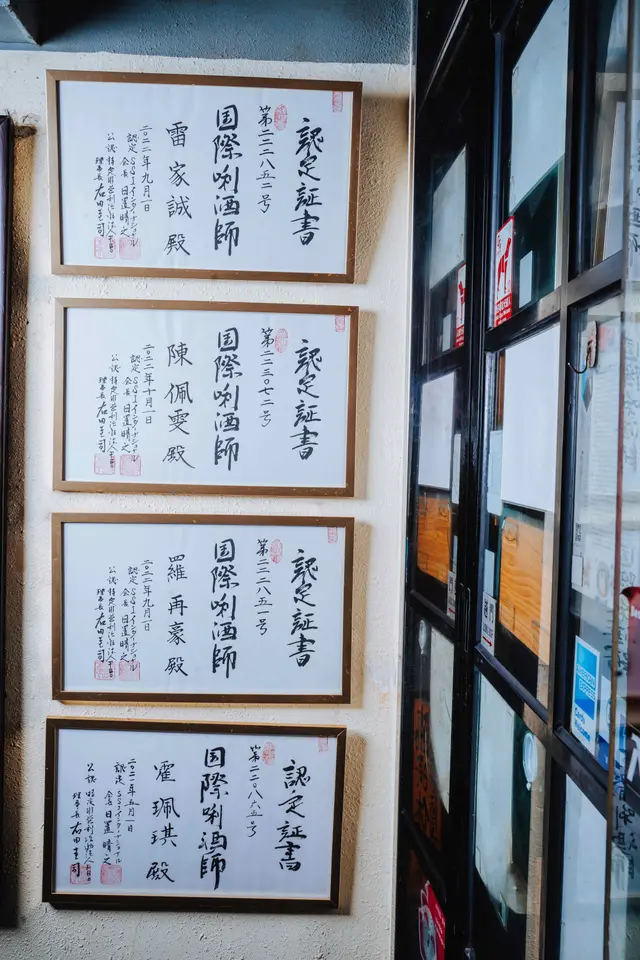 認定証書
第二二二八五二号
国際唎酒師
雷家誠殿
二〇二二年九月一日
認定 SSIインターナショナル
会長 日置晴之
公認 特定非営利活動法人
理事長 右田圭司
認定証書
第二二三〇七二号
国際唎酒師
陳佩雯殿
二〇二二年十月一日
認定 SSIインターナショナル
会長 日置晴之
公認 特定非営利活動法人
理事長 右田圭司
認定証書
第二二二八五一号
国際唎酒師
羅再豪殿
二〇二二年九月一日
認定 SSIインターナショナル
会長 日置晴之
公認 特定非営利活動法人
理事長 右田圭司
認定証書
第二二〇八六五号
国際唎酒師
霍珮琪殿
二〇二一年五月一日
認定 SSIインターナショナル
会長 日置晴之
公認 特定非営利活動法人
理事長 右田圭司
AMERICAN
EXPRESS